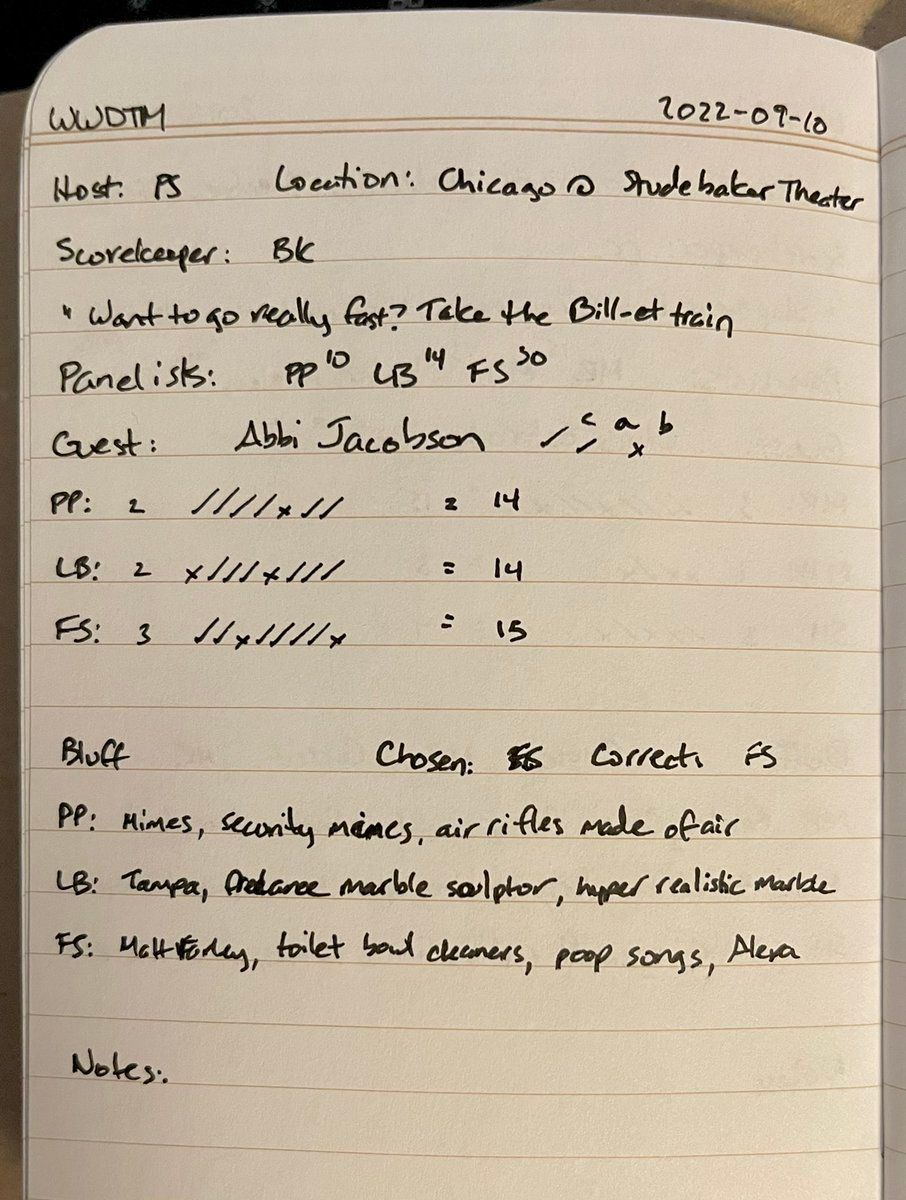 WWDTM 2022-09-10
Host: PS Location: Chicago @ Studebaker Theater
Scorekeeper: BK
" Want to go really fast? Take the Bill-et train
Panelists: PP 10 LB 14 FS 30
Guest: Abbi Jacobson ✓ c ✓ a x b
PP: 2 ////x// = 14
LB: 2 x///x/// = 14
FS: 3 //x////x = 15
Bluff Chosen: Correct: FS
PP: Mimes, security mimes, air rifles made of air
LB: Tampa, freelance marble sculptor, hyper realistic marble
FS: Matt Farley, toilet bowl cleaners, poop songs, Alexa
Notes: